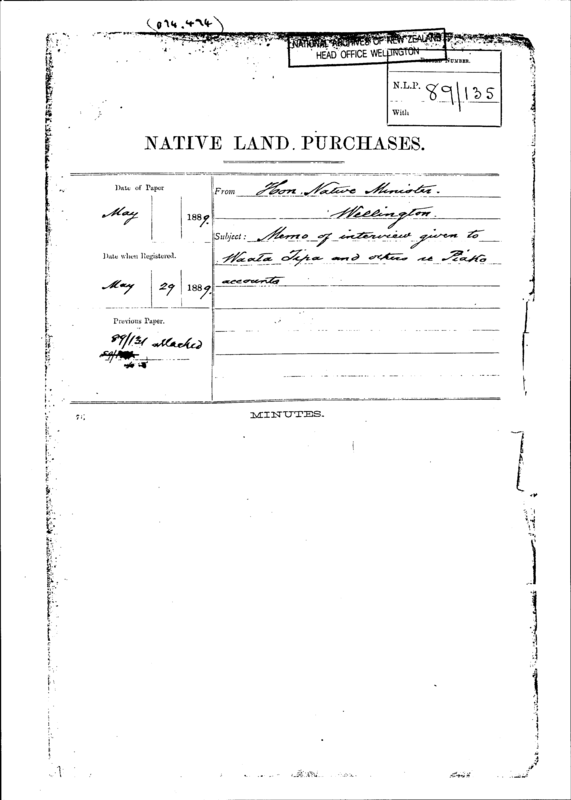 (074.474)
NATIONAL ARCHIVES OF NEW ZEALAND
HEAD OFFICE WELLINGTON
NUMBER.
N.L.P. 89/135
With
NATIVE LAND PURCHASES.
Date of Paper
May 1889.
Date when Registered.
May 29 1889.
Previous Paper.
89/131 attached
From Hon. Native Minister.
Wellington.
Subject: Memo of interview given to
Waata Tipa and others re Piako
accounts
MINUTES.